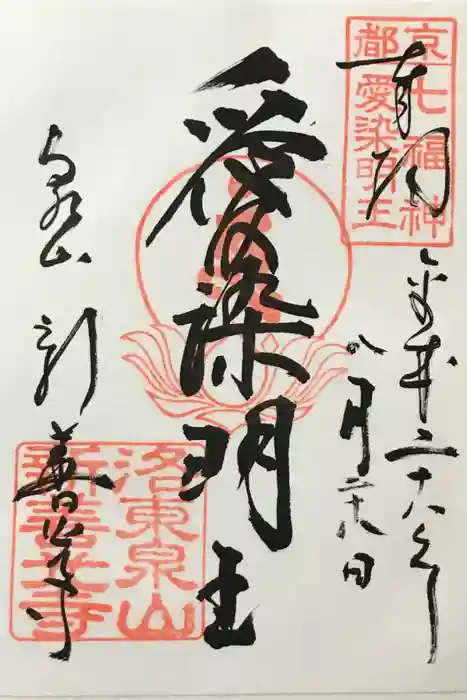 奉拝
京
都
七福神
愛染明王
平成二十八年
八月二十八日
愛染明王
泉山
新善光寺
洛東泉山
新善光寺